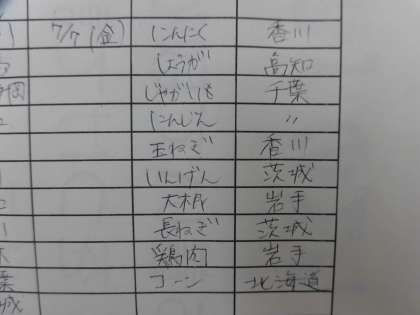 7/7(金) にんにく 香川
しょうが 高知
岡 じゃがいも 千葉
にんじん 〃
玉ねぎ 香川
いんげん 茨城
大根 岩手
川 長ねぎ 茨城
木 鶏肉 岩手
葉 コーン 北海道
城